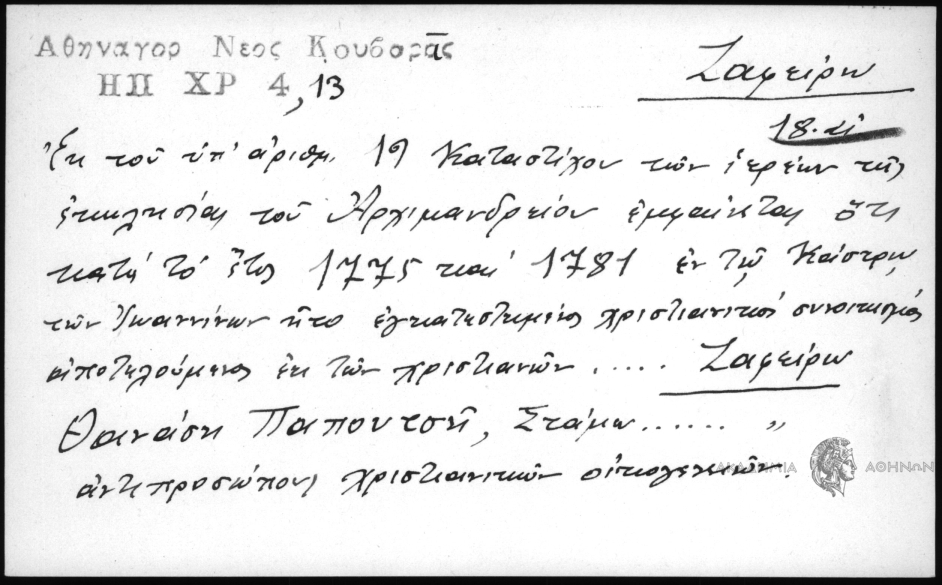 Αθηναγορ Νεος Κουβαρᾶς
ΗΠ ΧΡ 4, 13
Ζαφείρω
18. αἰ
Ἐκ τοῦ ὑπ' ἀριθμ. 19 Καταστίχου τῶν ἱερέων τῆς
ἐκκλησίας τοῦ Ἀρχιμανδρείου ἐμφαίνεται ὅτι
κατά τό ἔτος 1775 καί 1781 ἐν τῷ Κάστρῳ
τῶν Ἰωαννίνων ἦτο ἐγκατεστημένος χριστιανικός συνοικισμός
ἀποτελούμενος ἐκ τῶν χριστιανῶν ..... Ζαφείρω
Θανάση Παπουτσῆ, Στάμω...... "
ἀντιπροσώπους χριστιανικῶν οἰκογενειῶν.
ΑΚΑΔΗΜΙΑ ΑΘΗΝΩΝ